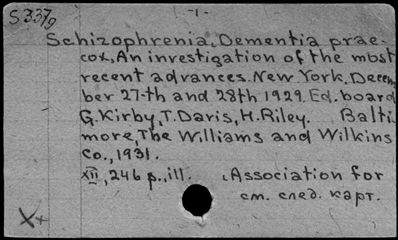 S3379
-1-
Schizophrenia, Dementia prae-
cox, An investigation of the most
recent advances. New York. Decem
ber 27-th and 28th 1929. Ed. board
G. Kirby, T. Davis, H. Riley. Balti
more, The Williams and Wilkins
Co., 1931.
XII, 246 p., ill. Association for
см. след. карт.
X